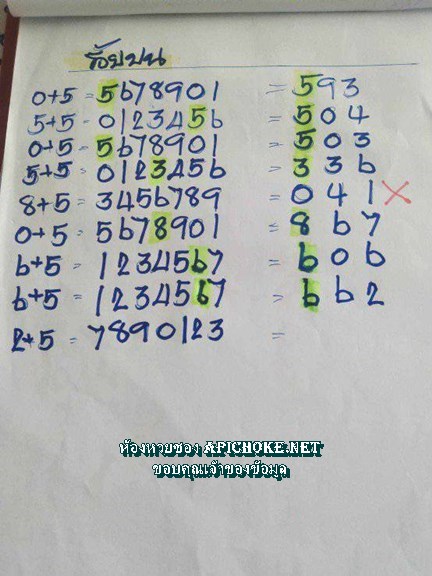 ร้อยบน
0+5 = 5678901 = 593
5+5 = 0123456 = 504
0+5 = 5678901 = 503
5+5 = 0123456 = 336
8+5 = 3456789 = 041 ×
0+5 = 5678901 = 867
6+5 = 1234567 = 606
6+5 = 1234567 = 662
2+5 = 7890123 =
ห้องหวยซอง APICHOKE.NET
ขอบคุณเจ้าของข้อมูล